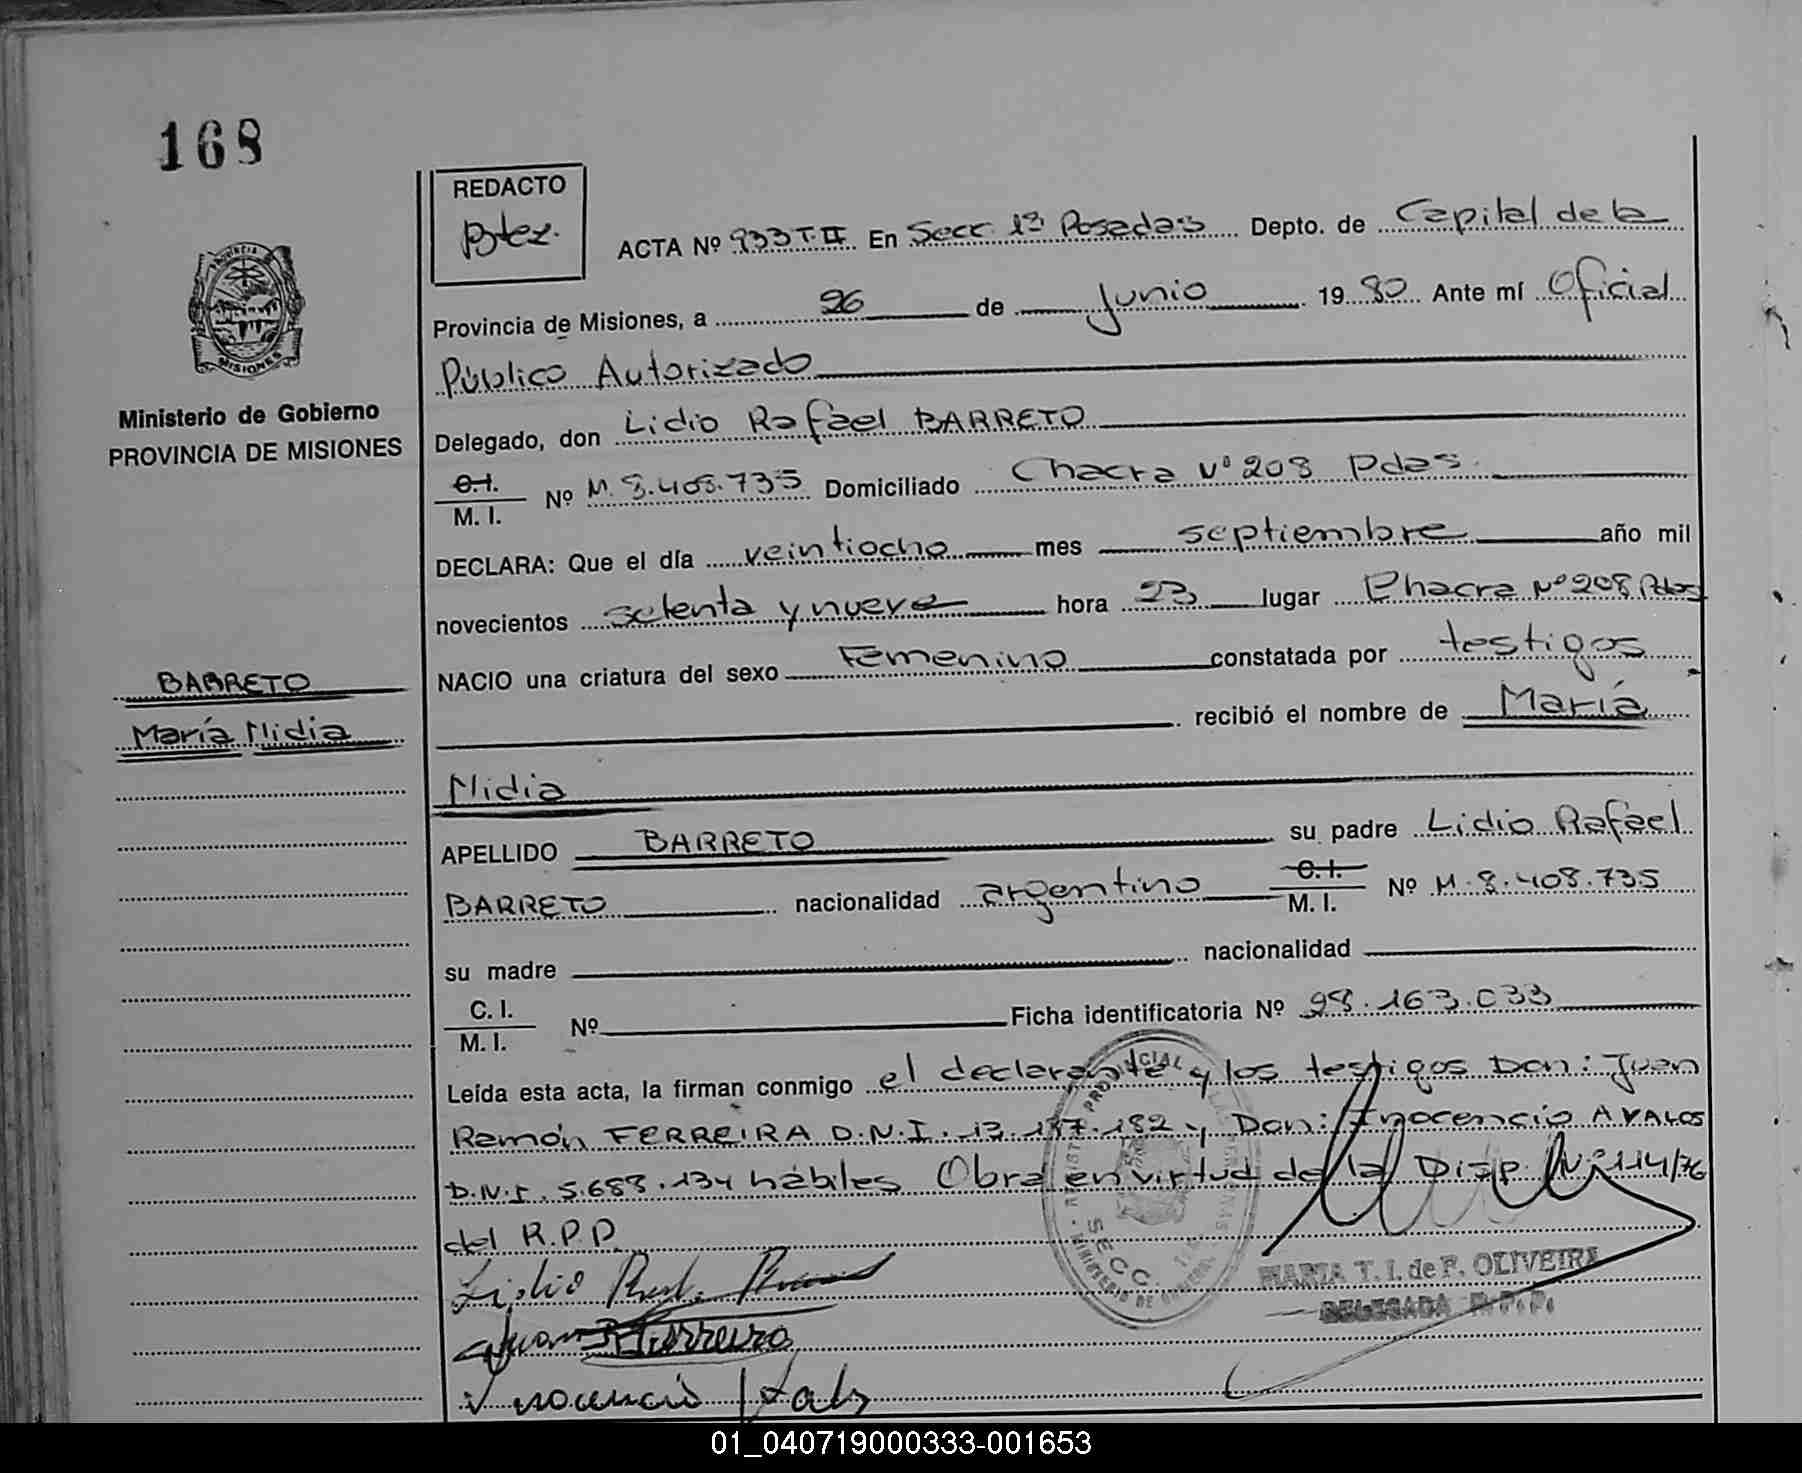 168
REDACTO
Btez.
ACTA Nº 933 T. II En Secc 1ª Posadas Depto. de Capital de la
Provincia de Misiones, a 26 de Junio 1980 Ante mí Oficial
Público Autorizado
Delegado, don Lidio Rafael BARRETO
C.I.
M. I. Nº M. 8.408.735 Domiciliado Chacra Nº 208 Pdas.
DECLARA: Que el día veintiocho mes septiembre año mil
novecientos setenta y nueve hora 23 lugar Chacra Nº 208 Pdas
NACIO una criatura del sexo Femenino constatada por testigos
recibió el nombre de María
Nidia
APELLIDO BARRETO su padre Lidio Rafael
BARRETO nacionalidad argentino C.I. M. I. Nº M. 8.408.735
su madre nacionalidad
C. I.
M. I. Nº Ficha identificatoria Nº 28.163.033
Leída esta acta, la firman conmigo el declarante y los testigos Don: Juan
Ramón FERREIRA D.N.I. 13.197.182 y Don: Inocencio AVALOS
D.N.I. 5.688.134 hábiles Obra en virtud de la Disp. Nº 114/76
del R.P.P.
MARIA T. I. de F. OLIVEIRA
DELEGADA R. P. P.
SECC.
PROVINCIA
MISIONES
Ministerio de Gobierno
PROVINCIA DE MISIONES
BARRETO
María Nidia
01_040719000333-001653